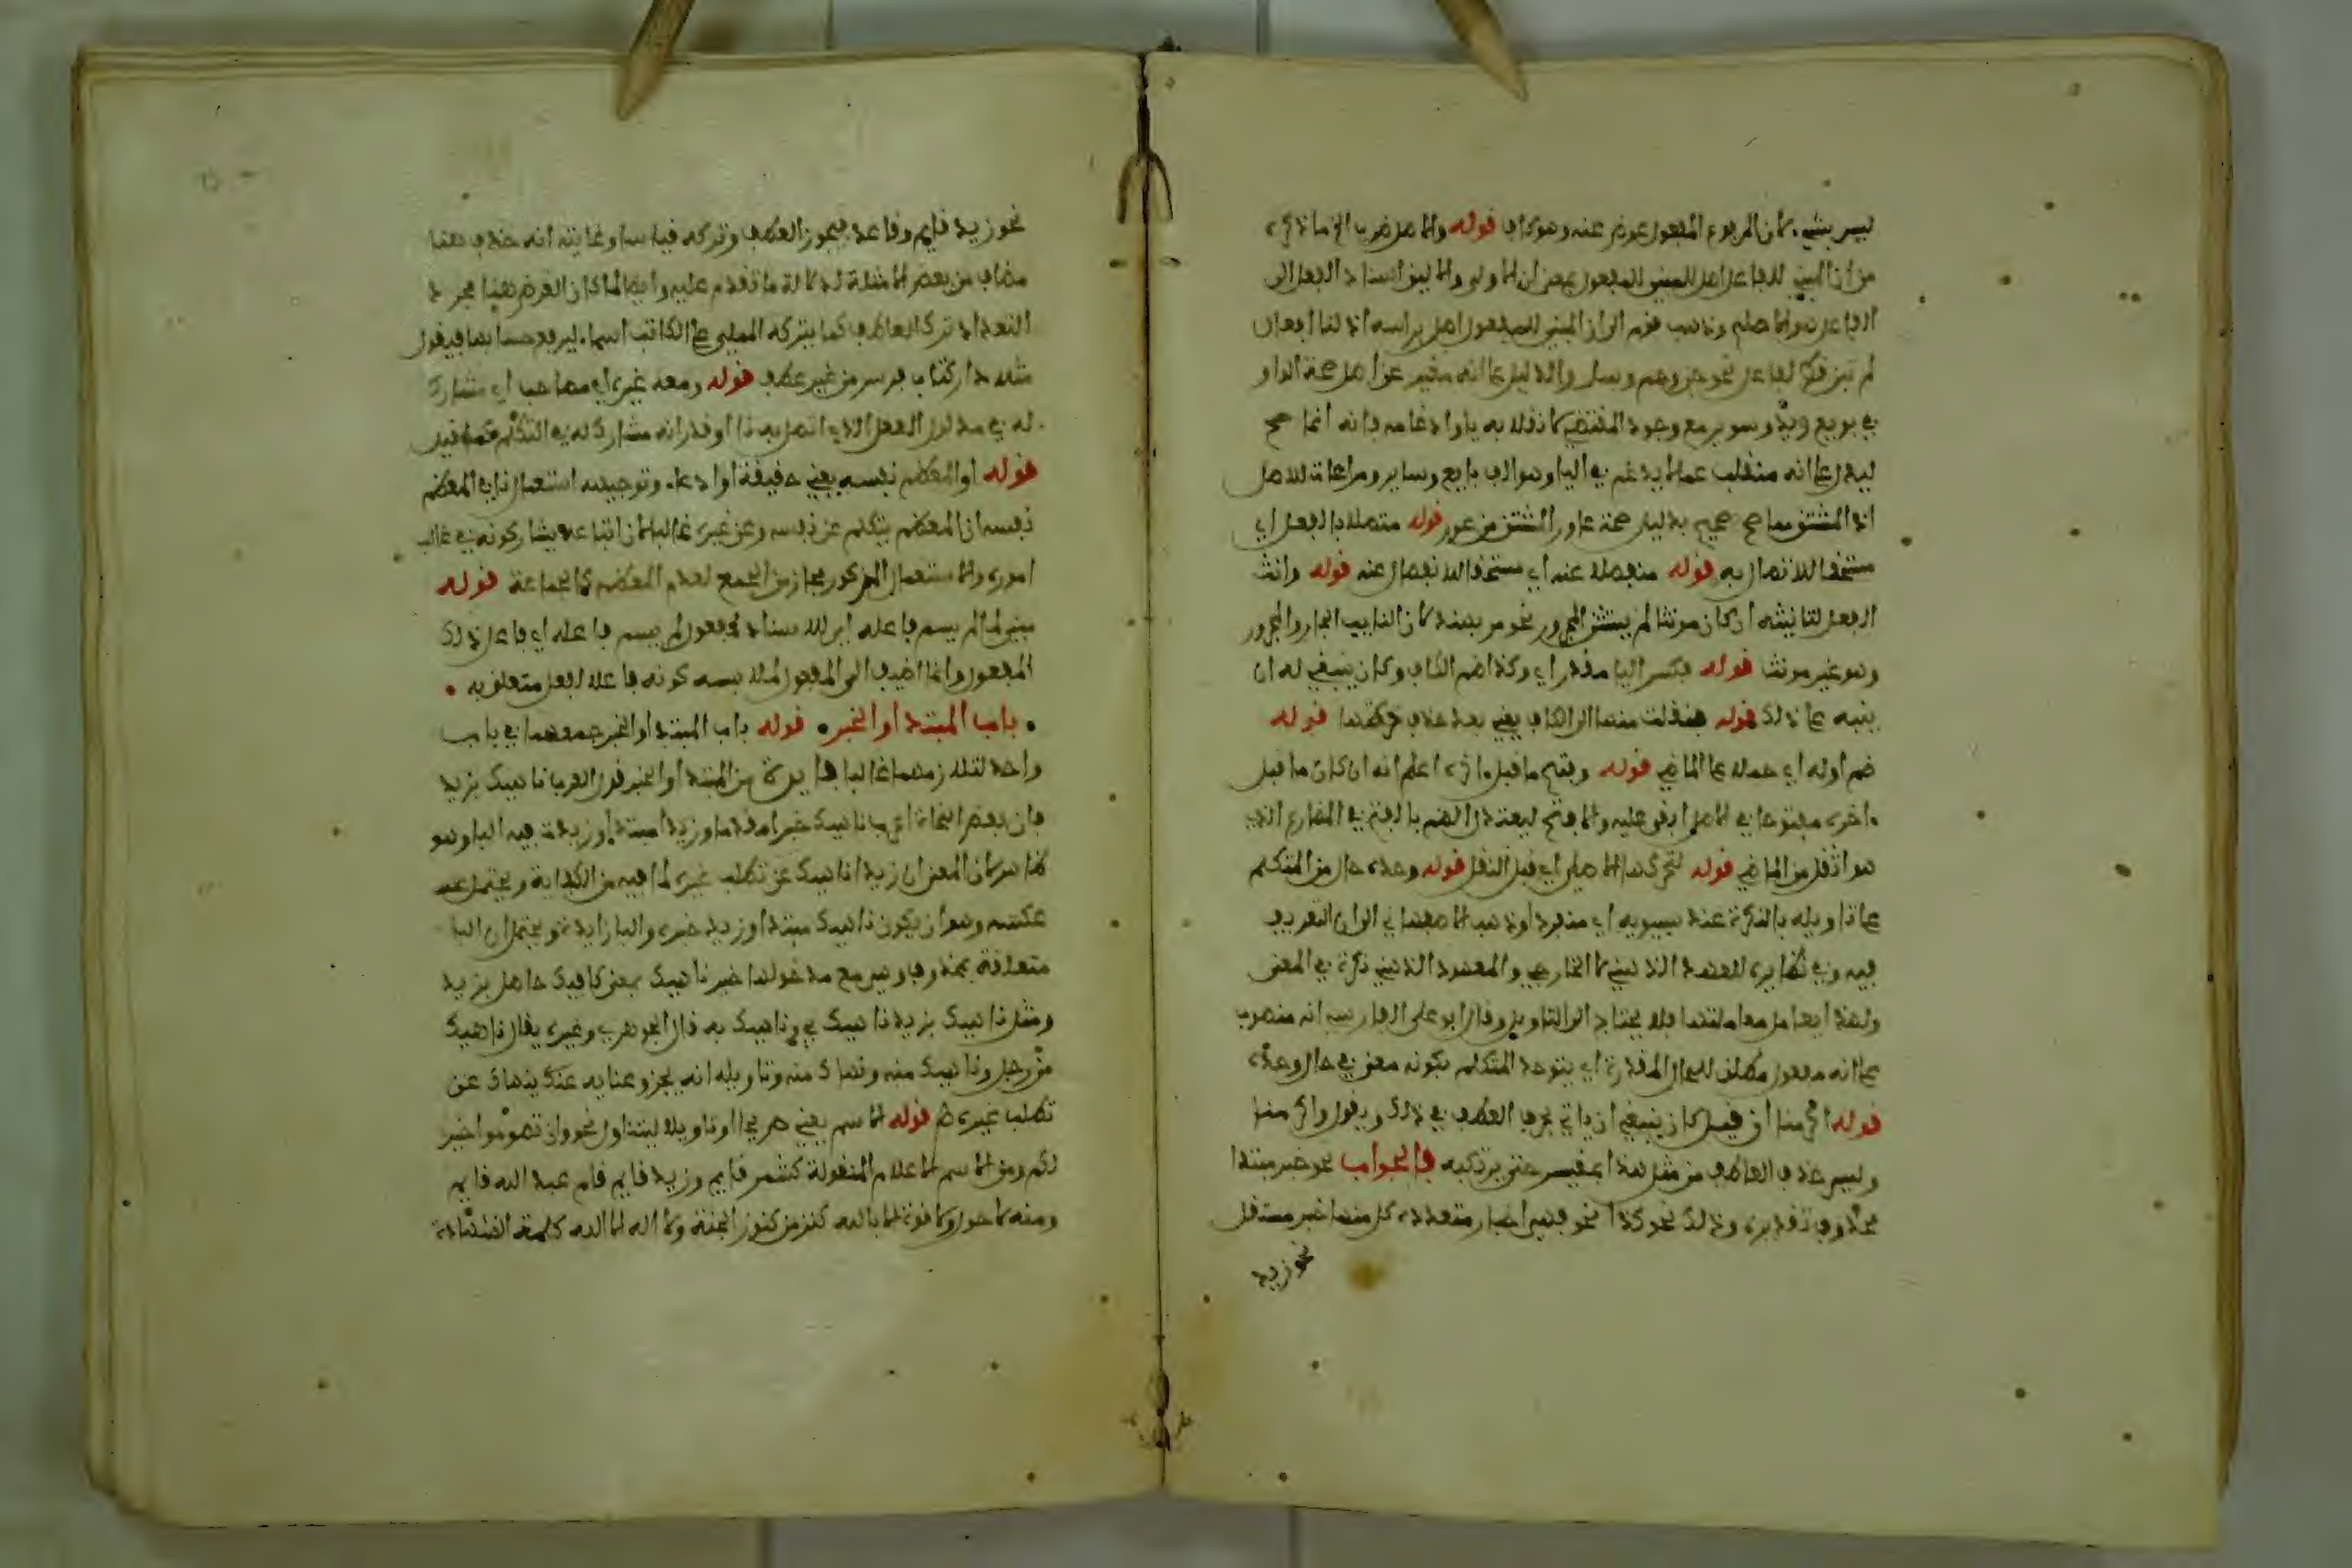 ليس بشيء لان المرفوع المفعول عوض عنه وهو كاف قوله والاصل ضرب الخ ما ذكره
من ان المبني للفاعل اصل للمبني للمفعول بمعنى ان الاولى والاليق اسناد الفعل الى
الفاعل هو الاصل وذهب قوم الى ان المبني للمفعول اصل براسه اذ لنا افعال
لم تبن قط لفاعل نحو جن وهم وسل والدليل على انه مغير عن اصل صحة الواو
في بويع وسوير مع وجود المقتضي لانقلابه ياء وادغامه فانه انما صح
ليدل على انه منقلب عما لا يدغم في الياء وهو الف بايع وساير ومراعاة للاصل
اذ المشتق مما صح صحيح بدليل صحة عاور المشتق من عور قوله متصلا بالفعل اي
مستحقا للاتصال به قوله منفصلا عنه اي مستحقا للانفصال عنه قوله وانث
الفعل لتانيثه ان كان مونثا لم يستثن المجرور نحو مر بهند لان النايب الجار والمجرور
وهو غير مونث قوله فكسر الياء مقدر اي وكذا ضم القاف وكان ينبغي له ان
ينبه على ذلك قوله فنقلت منها الى القاف يعني بعد حذف حركتها قوله
ضم اوله اي حملا على الماضي قوله وفتح ما قبل اخره اعلم انه ان كان ما قبل
اخره مفتوحا في الاصل ابقي عليه والا فتح ليعتدل الضم بالفتح في المضارع الذي
هو اثقل من الماضي قوله لتحركها الاصلي اي قبل النقل قوله وحده حال من المتكلم
على تاويله بالنكرة عند سيبويه اي منفردا وذهب الاصفهاني الى ان التعريف
فيه وفي نظايره للعهد الذهني لا الخارجي والمعهود الذهني نكرة في المعنى
ولهذا يعامل معاملتها فلا يحتاج الى التاويل وقال ابو علي الفارسي انه منصوب
على انه مفعول مطلق للحال المقدرة اي يتوحد المتكلم بكونه معنى في حال وحده
قوله اكرمنا ان قيل كان ينبغي ان ياتي بحرف العطف في ذلك ويقول واكرمنا
وليس حذف العاطف من مثل هذا بمقيس حتى يرتكبه فالجواب نحو خبر مبتدا
محذوف تقديره وذلك نحو كذا نحو فهي اخبار متعددة كل منها خبر مستقل
نحو زيد
نحو زيد قايم وقاعد فيجوز العطف وتركه قياسا وغايته انه حذف هنا
مضاف من بعض الامثلة لدلالة ما تقدم عليه وايضا لما كان الغرض هنا مجرد
التعداد ترك العاطف كما يتركه المملي على الكاتب اسماء ليرفع حسابها فيقول
مثلا دار كتاب فرس من غير عطف قوله ومعه غيره اي مصاحبا اي مشارك
له في مدلول الفعل الذي اتصل به نا او قدر انه مشارك له في التكلم
قوله او المعظم نفسه يعني حقيقة او ادعاء وتوجيه استعمال نا في المعظم
نفسه ان المعظم يتكلم عن نفسه وعن غيره غالبا لان اتباعه يشاركونه في غالب
اموره والاستعمال المذكور مجاز من الجمع لعدم المعظم كالجماعة قوله
مبني لما لم يسم فاعله اي للاسناد لمفعول لم يسم فاعله اي فاعل ذلك
المفعول وانما اضيف الى المفعول لملابسه كونه فاعلا لفعل متعلق به
باب المبتدا والخبر قوله باب المبتدا والخبر جمعهما في باب
واحد لتلازمهما غالبا فايدة من المبتدا والخبر قول العرب ناهيك بزيد
فان بعض النحاة اعرب ناهيك خبرا مقدما وزيد مبتدا وزيدت فيه الباء وهو
ظاهر لان المعنى ان زيدا ناهيك عن تطلب غيره لما فيه من الكفاية ويحتمل عند
عكسه وهو ان يكون ناهيك مبتدا وزيد خبره والباء زايدة ويحتمل ان الباء
متعلقة بمحذوف وهي مع مدخولها خبر ناهيك بمعنى كافيك حاصل بزيد
ومثل ناهيك بزيد ناهيك بي وناهيك به قال الجوهري وغيره يقال ناهيك
من رجل وناهيك منه ونهاك منه وتاويله انه بجده وغنايه عنك ينهاك عن
تطلب غيره قوله الاسم يعني صريحا او تاويلا ليتناول نحو وان تصوموا خير
لكم ومن الاسم الاعلام المنقولة كشمر قايم وزيد قايم قام عبد الله قايم
ومنه لا حول ولا قوة الا بالله كنز من كنوز الجنة ولا اله الا الله كلمة الشهادة